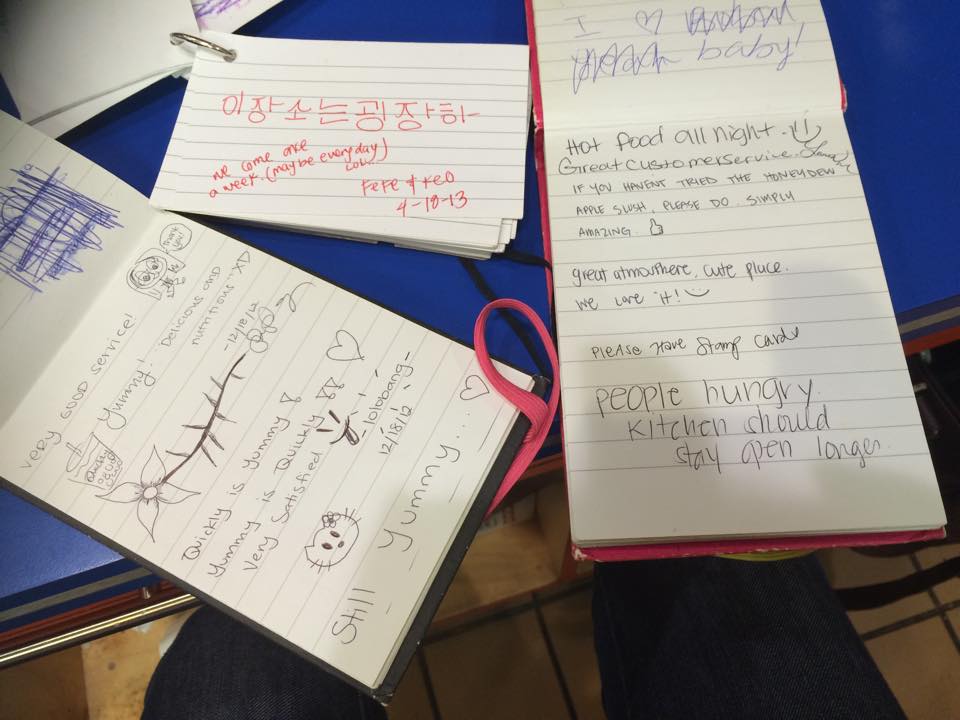 이장소는굉장하
we come once
a week. (maybe everyday)
LOL.
FeFe & KeO
4-18-13
I ♡
baby!
Hot food all night.
Great customer service.
IF YOU HAVENT TRIED THE HONEYDEW
APPLE SLUSH, PLEASE DO. SIMPLY
AMAZING.
great atmosphere, cute place.
We love it!
PLEASE Have Stamp Card
people hungry.
Kitchen should
stay open longer.
VERY GOOD SERVICE!
Thank you!
Yummy! Delicious and
nutritious :XD
-12/18/12
Quickly
Quickly is Yummy
Yummy is Quickly
Very Satisfied
-lolobang-
12/18/12
Still - Yummy...